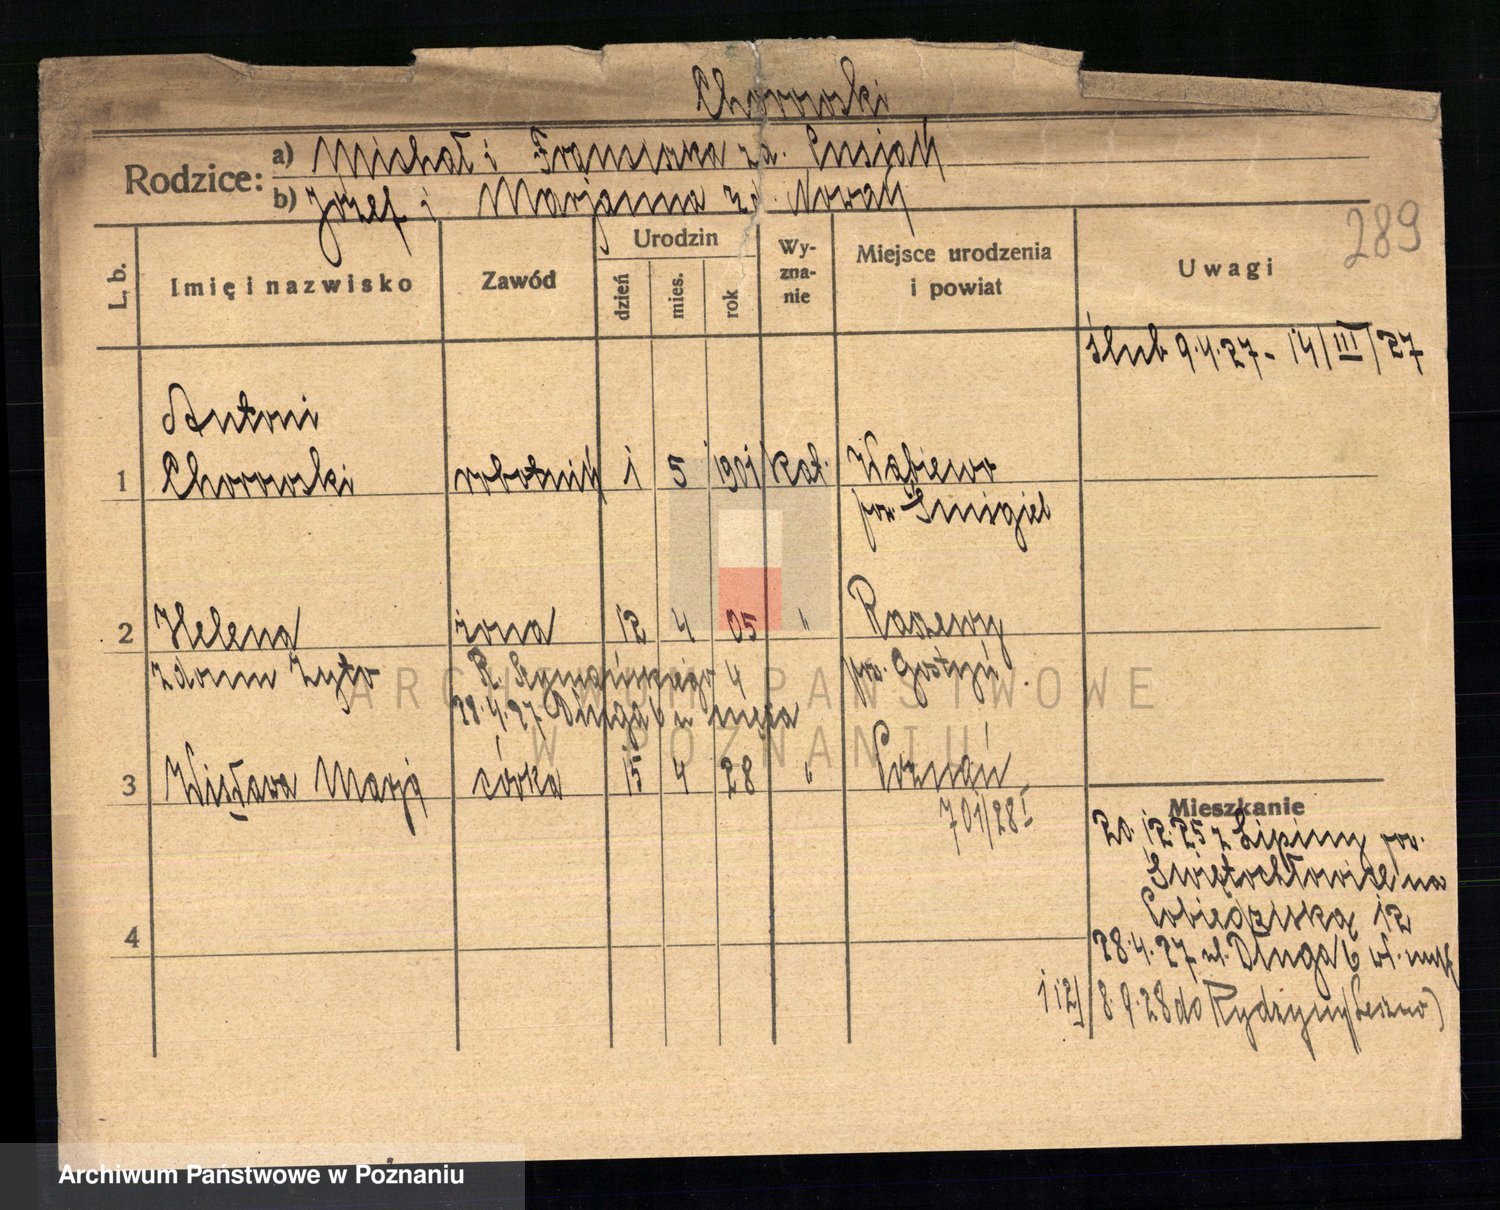 Chorowski
Rodzice:
a) Michał i Franciszka zd.
b) Józef i Marjanna zd. Nowak
289
L. b.
Imię i nazwisko
Zawód
Urodzin
dzień
mies.
rok
Wy-
zna-
nie
Miejsce urodzenia
i powiat
Uwagi
ślub 9.4.27 - 14/III/27
Antoni
1 Chorowski robotnik 1 5 1901 kat.
pow Śmigiel
2 Helena żona 12 4 05 "
z domu Żyto
4 pow. Gostyń
28.4.27 Długa 6 u męża
3 Wisława Marja córka 15 4 28 " Poznań
701/28 I
4
Mieszkanie
20.12.25 z Lipiny pow.
Świętochłowice na
Pobiedziską 12
28.4.27 ul. Długa 6
8.9.28 do Rydzyny (Leszno)
ARCHIWUM PAŃSTWOWE
W POZNANIU
Archiwum Państwowe w Poznaniu